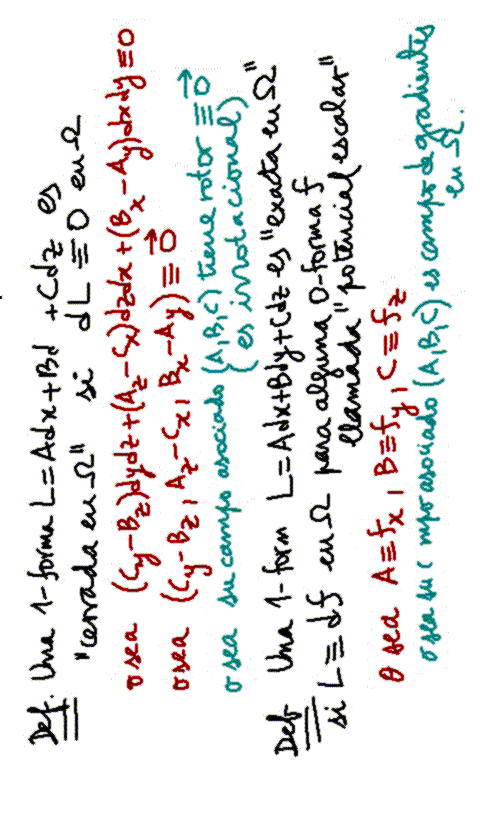 Def. Una 1-forma L=Adx+Bd +Cdz es
"cerrada en Ω" si dL ≡ 0 en Ω
o sea (Cy-Bz)dydz+(Az-Cx)dzdx+(Bx-Ay)dxdy≡0
o sea (Cy-Bz, Az-Cx, Bx-Ay)≡0⃗
o sea su campo asociado (A,B,C) tiene rotor ≡0⃗
(es irrotacional)
Def Una 1-form L=Adx+Bdy+Cdz es "exacta en Ω"
si L≡df en Ω para alguna 0-forma f
llamada "potencial escalar"
o sea A≡fx, B≡fy, C≡fz
o sea su c mpo asociado (A,B,C) es campo de gradientes
en Ω.